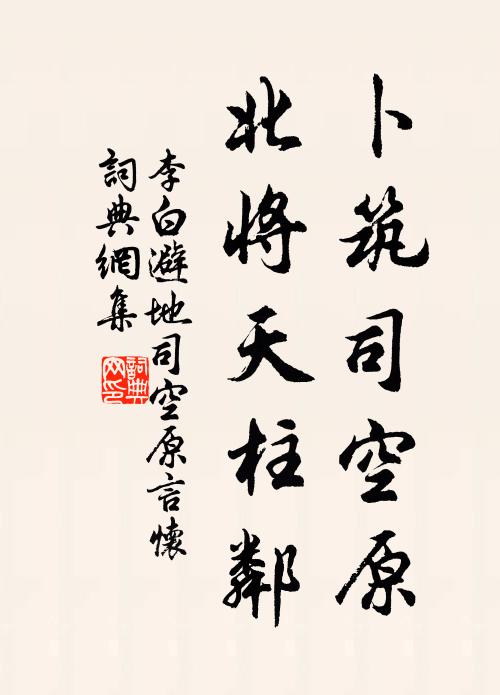 卜筑司空原
北將天柱鄰
李白避地司空原言懷
詞典網集
詞典網印